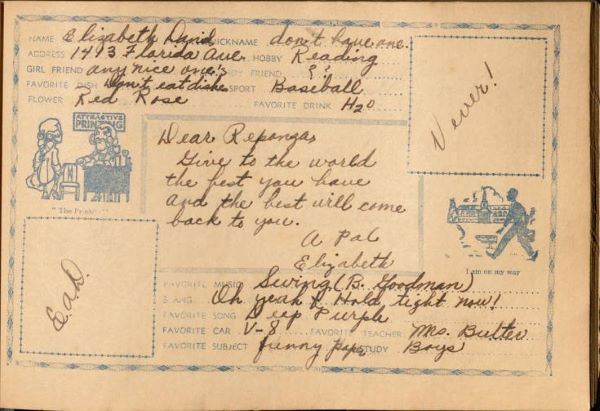 NAME Elizabeth David NICKNAME don't have one.
ADDRESS 1413 Florida Ave. HOBBY Reading
GIRL FRIEND any nice one's BOY FRIEND
FAVORITE DISH Don't eat dishes SPORT Baseball
FLOWER Red Rose FAVORITE DRINK H2O
Never!
ATTRACTIVE
PRINTING
Dear Reponza,
Give to the world
the best you have
and the best will come
back to you.
A Pal
Elizabeth
"The Printer"
I am on my way
E.a.D.
FAVORITE MUSIC Swing (B. Goodman)
SLANG Oh yeah & Hold tight now!
FAVORITE SONG Deep Purple
FAVORITE CAR V-8 FAVORITE TEACHER Ms. Butler
FAVORITE SUBJECT funny paps STUDY Boys!